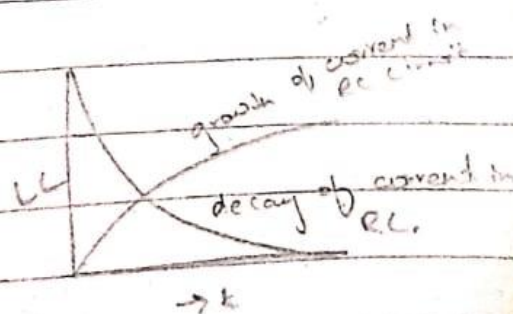 growth of current in
RC circuit
decay of current in
RC.
→ t